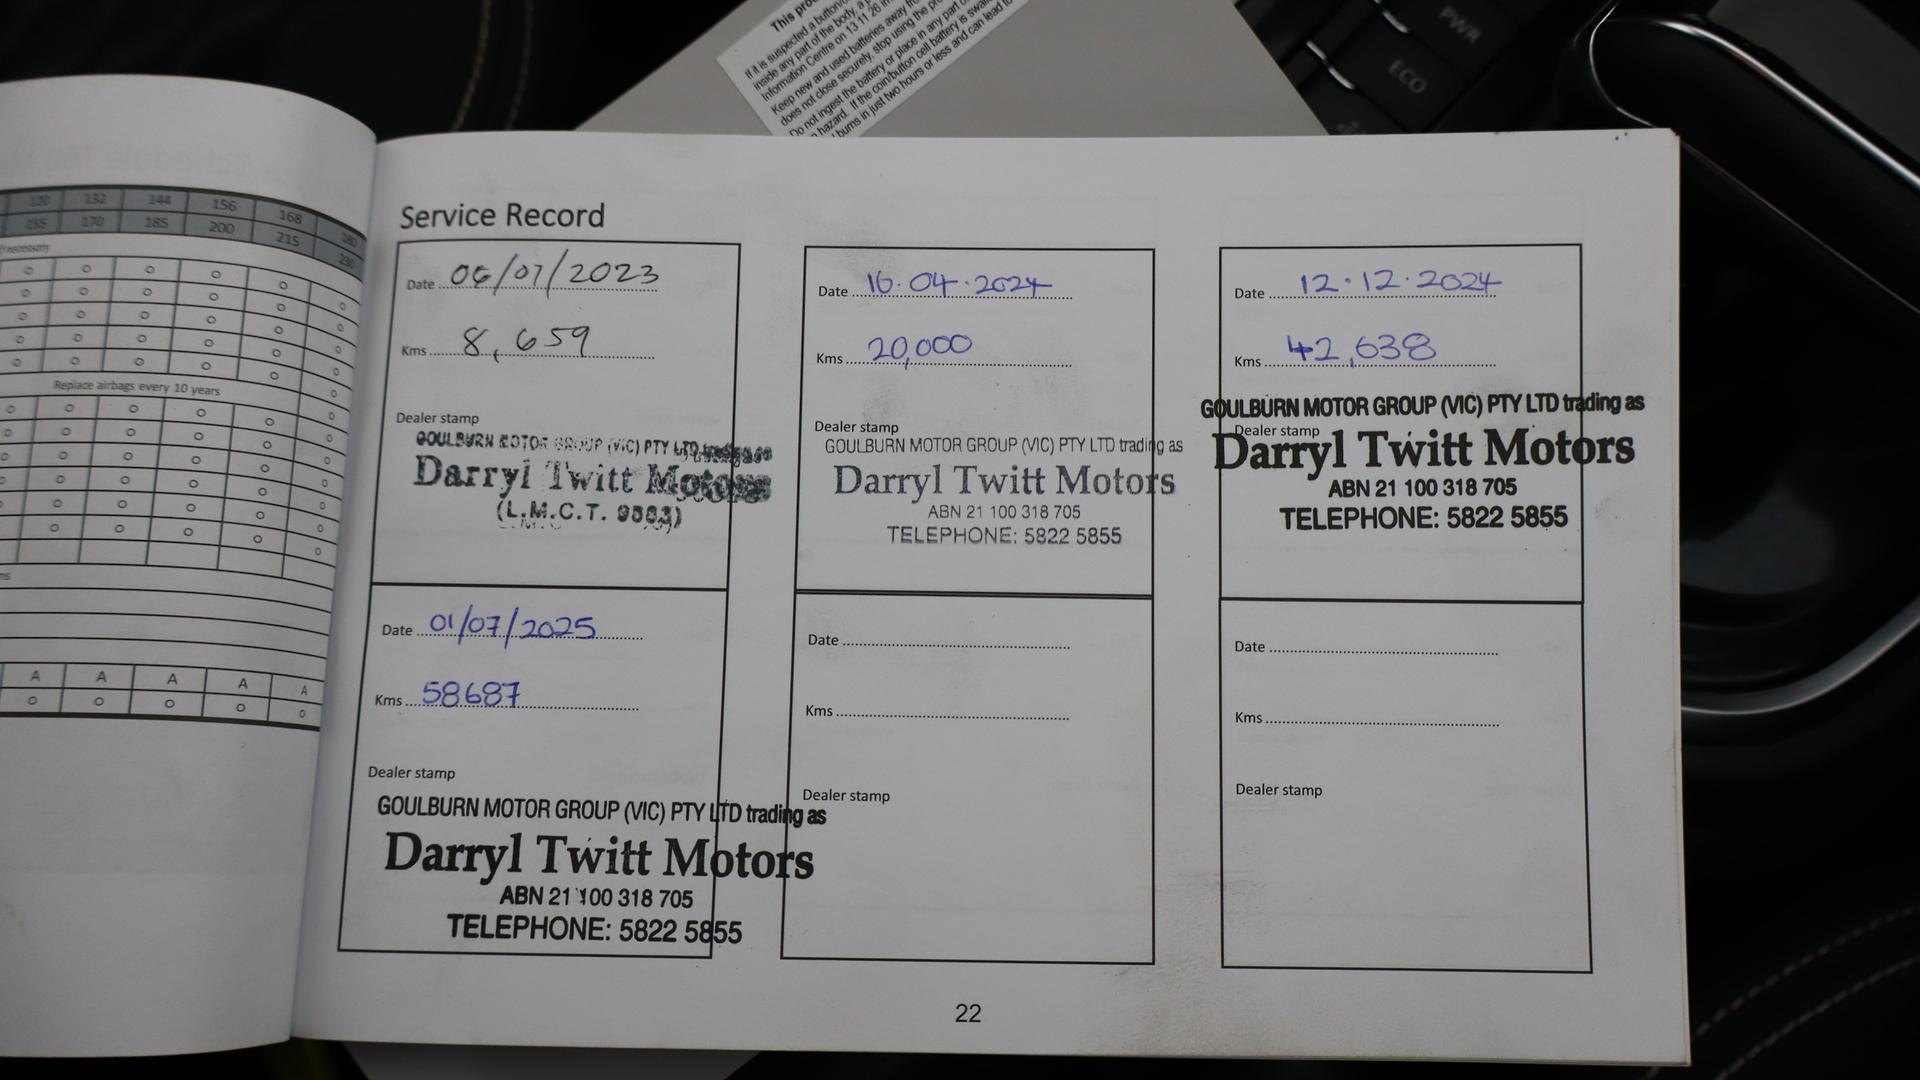 This pro
If it is suspected a button/
inside any part of the body, a
Information Centre on 13 11 26 in
Keep new and used batteries away fro
does not close securely, stop using the pro
Do not ingest the battery or place in any part o
hazard. If the coin/button cell battery is swal
burns in just two hours or less and can lead to
PWR
ECO
120 132 144 156 168 180
155 170 185 200 215 230
if necessary
Replace airbags every 10 years
ms
A A A A A
Service Record
Date 06/07/2023
Kms 8,659
Dealer stamp
GOULBURN MOTOR GROUP (VIC) PTY LTD trading as
Darryl Twitt Motors
(L.M.C.T. 9883)
Date 16.04.2024
Kms 20,000
Dealer stamp
GOULBURN MOTOR GROUP (VIC) PTY LTD trading as
Darryl Twitt Motors
ABN 21 100 318 705
TELEPHONE: 5822 5855
Date 12.12.2024
Kms 42,638
Dealer stamp
GOULBURN MOTOR GROUP (VIC) PTY LTD trading as
Darryl Twitt Motors
ABN 21 100 318 705
TELEPHONE: 5822 5855
Date 01/07/2025
Kms 58687
Dealer stamp
GOULBURN MOTOR GROUP (VIC) PTY LTD trading as
Darryl Twitt Motors
ABN 21 100 318 705
TELEPHONE: 5822 5855
Date
Kms
Dealer stamp
Date
Kms
Dealer stamp
22